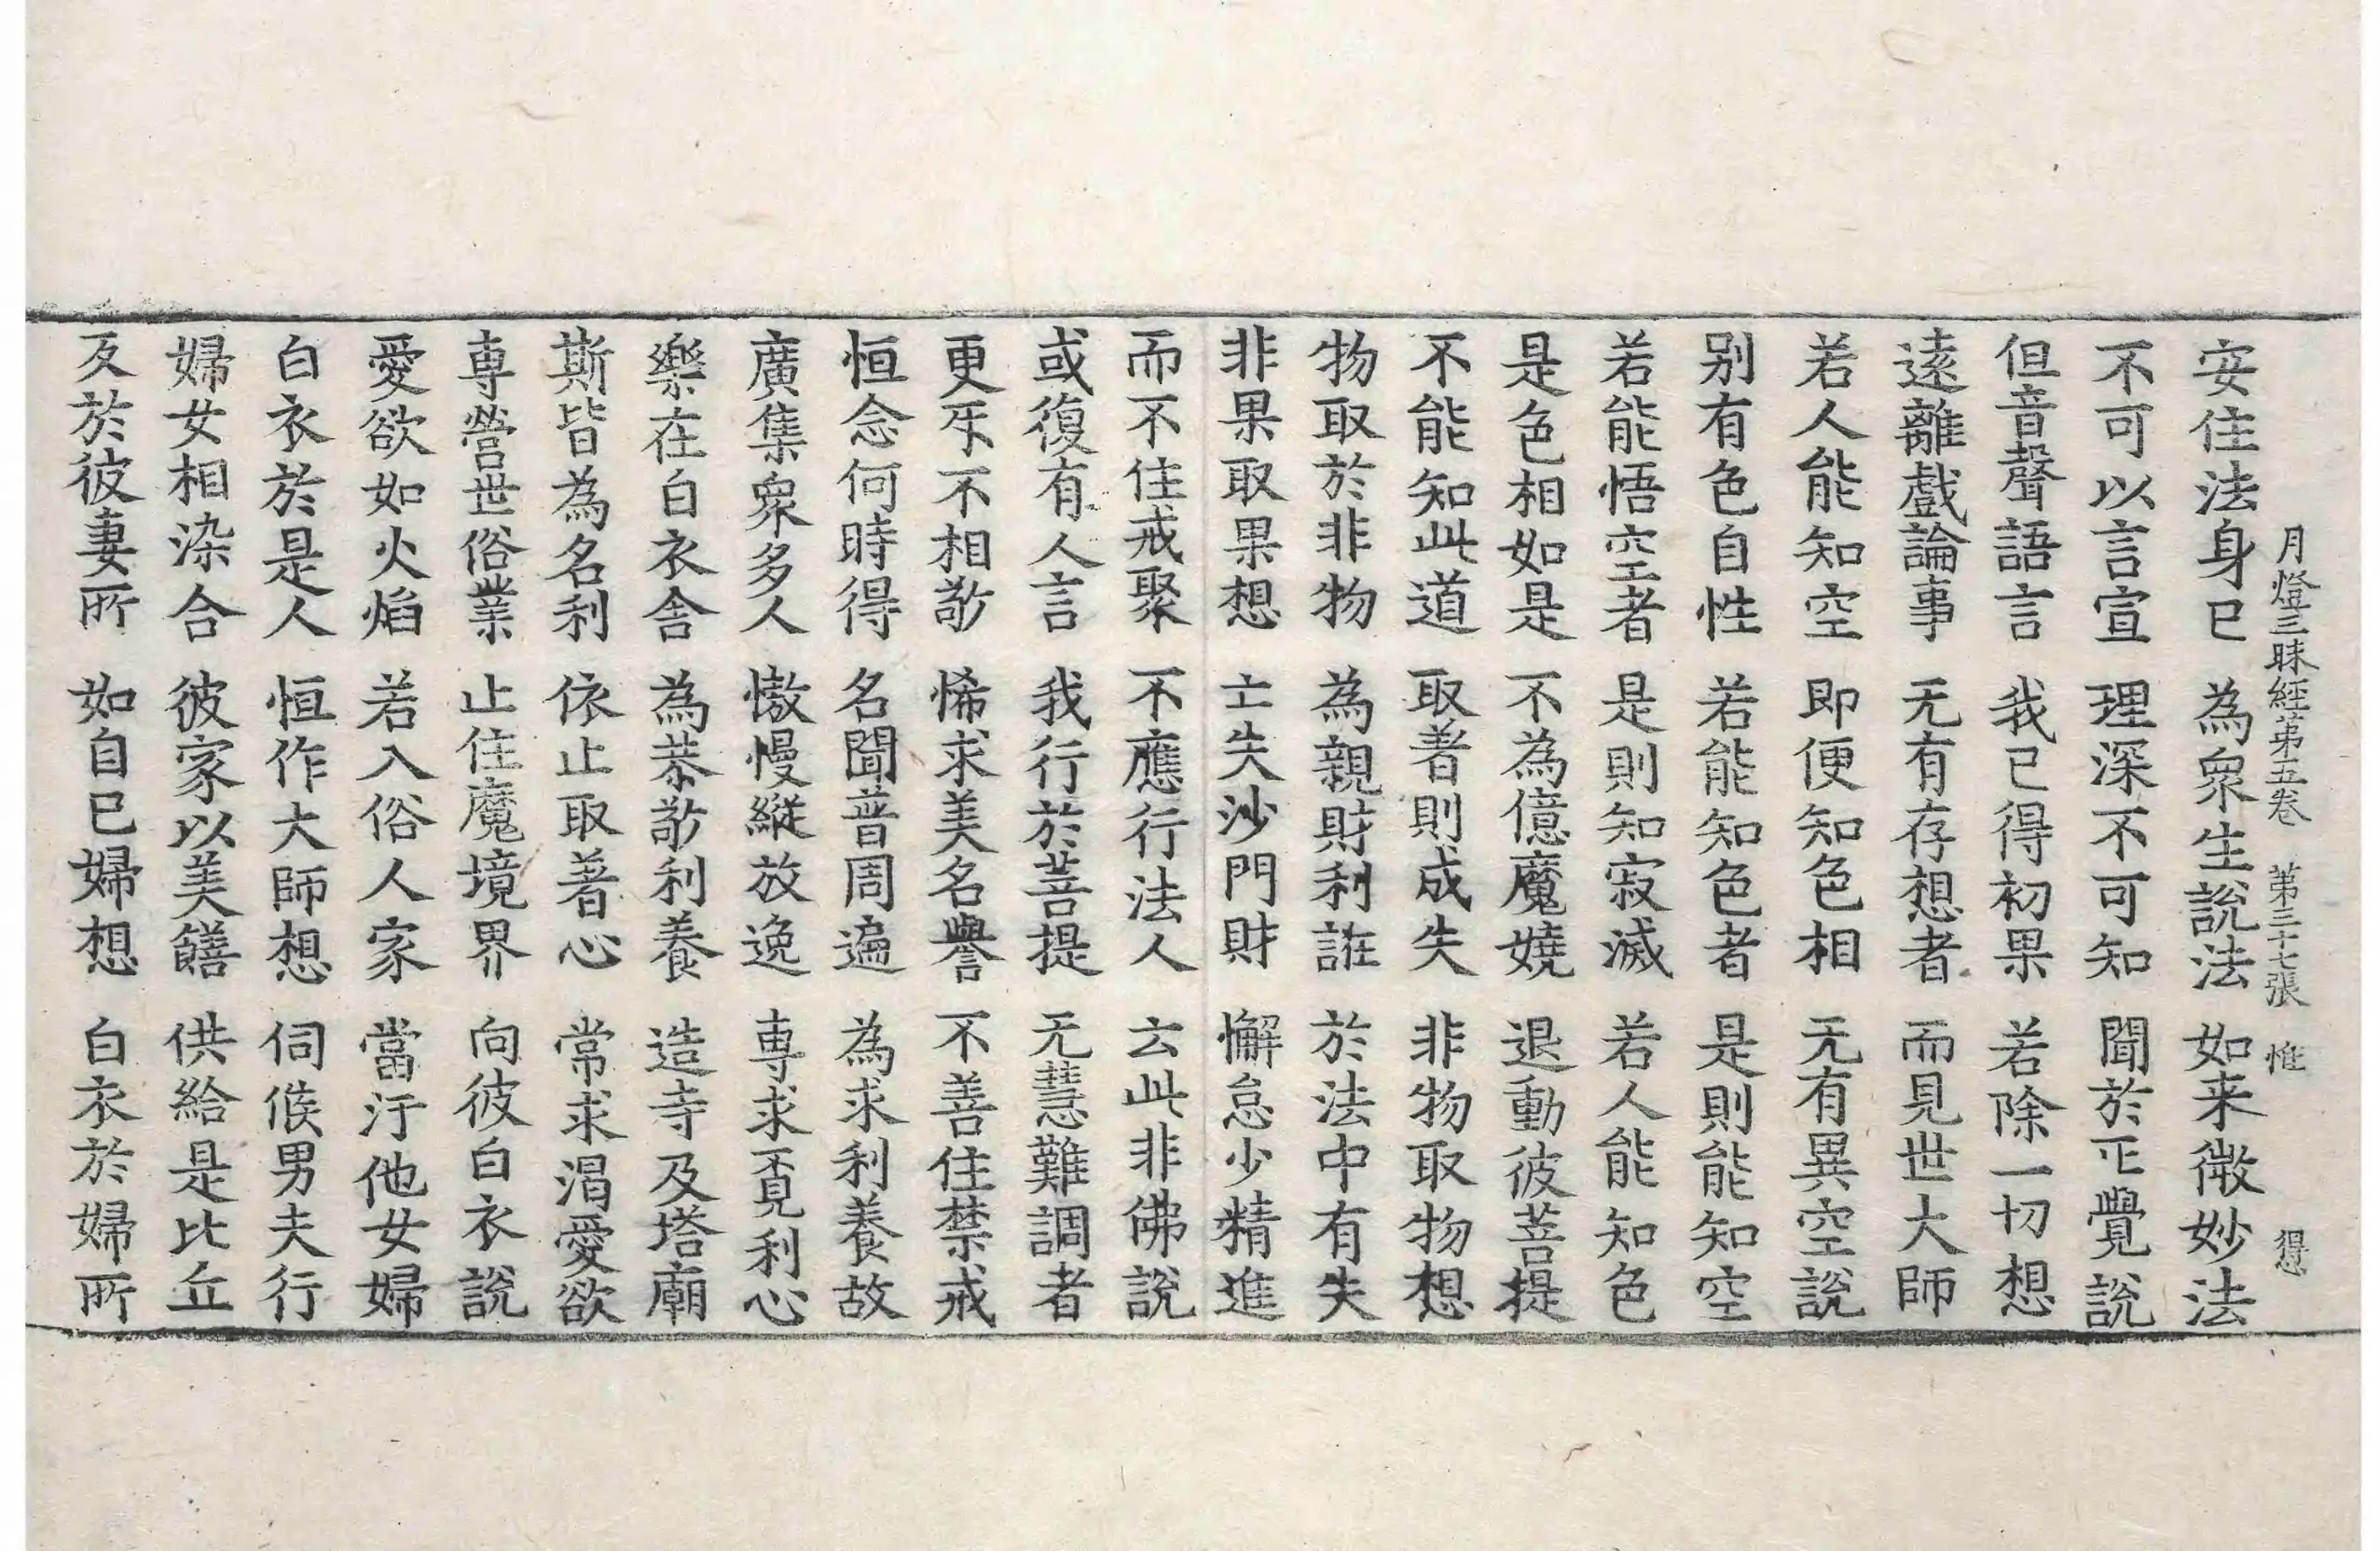 月燈三昧經第五卷 第三十七張 惟 得
安住法身已 為衆生說法 如来微妙法
不可以言宣 理深不可知 聞於正覺說
但音聲語言 我已得初果 若除一切想
遠離戲論事 无有存想者 而見世大師
若人能知空 即便知色相 无有異空說
别有色自性 若能知色者 是則能知空
若能悟空者 是則知寂滅 若人能知色
是色相如是 不為億魔嬈 退動彼菩提
不能知此道 取著則成失 非物取物想
物取於非物 為親財利誑 於法中有失
非果取果想 亡失沙門財 懈怠少精進
而不住戒聚 不應行法人 云此非佛說
或復有人言 我行於菩提 无慧難調者
更牙不相敬 悕求美名譽 不善住禁戒
恒念何時得 名聞普周遍 為求利養故
廣集衆多人 憿慢縱放逸 専求覔利心
樂在白衣舎 為恭敬利養 造寺及塔廟
斯皆為名利 依止取著心 常求渴愛欲
専營世俗業 止住魔境界 向彼白衣說
愛欲如火焰 若入俗人家 當汙他女婦
白衣於是人 恒作大師想 伺候男夫行
婦女相染合 彼家以美饍 供給是比丘
反於彼妻所 如自已婦想 白衣於婦所